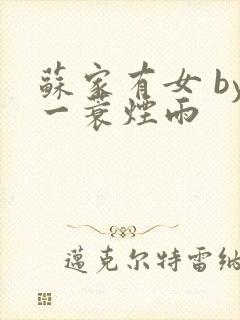 蘇家有女 by
一蓑煙雨
邁克尔特雷納